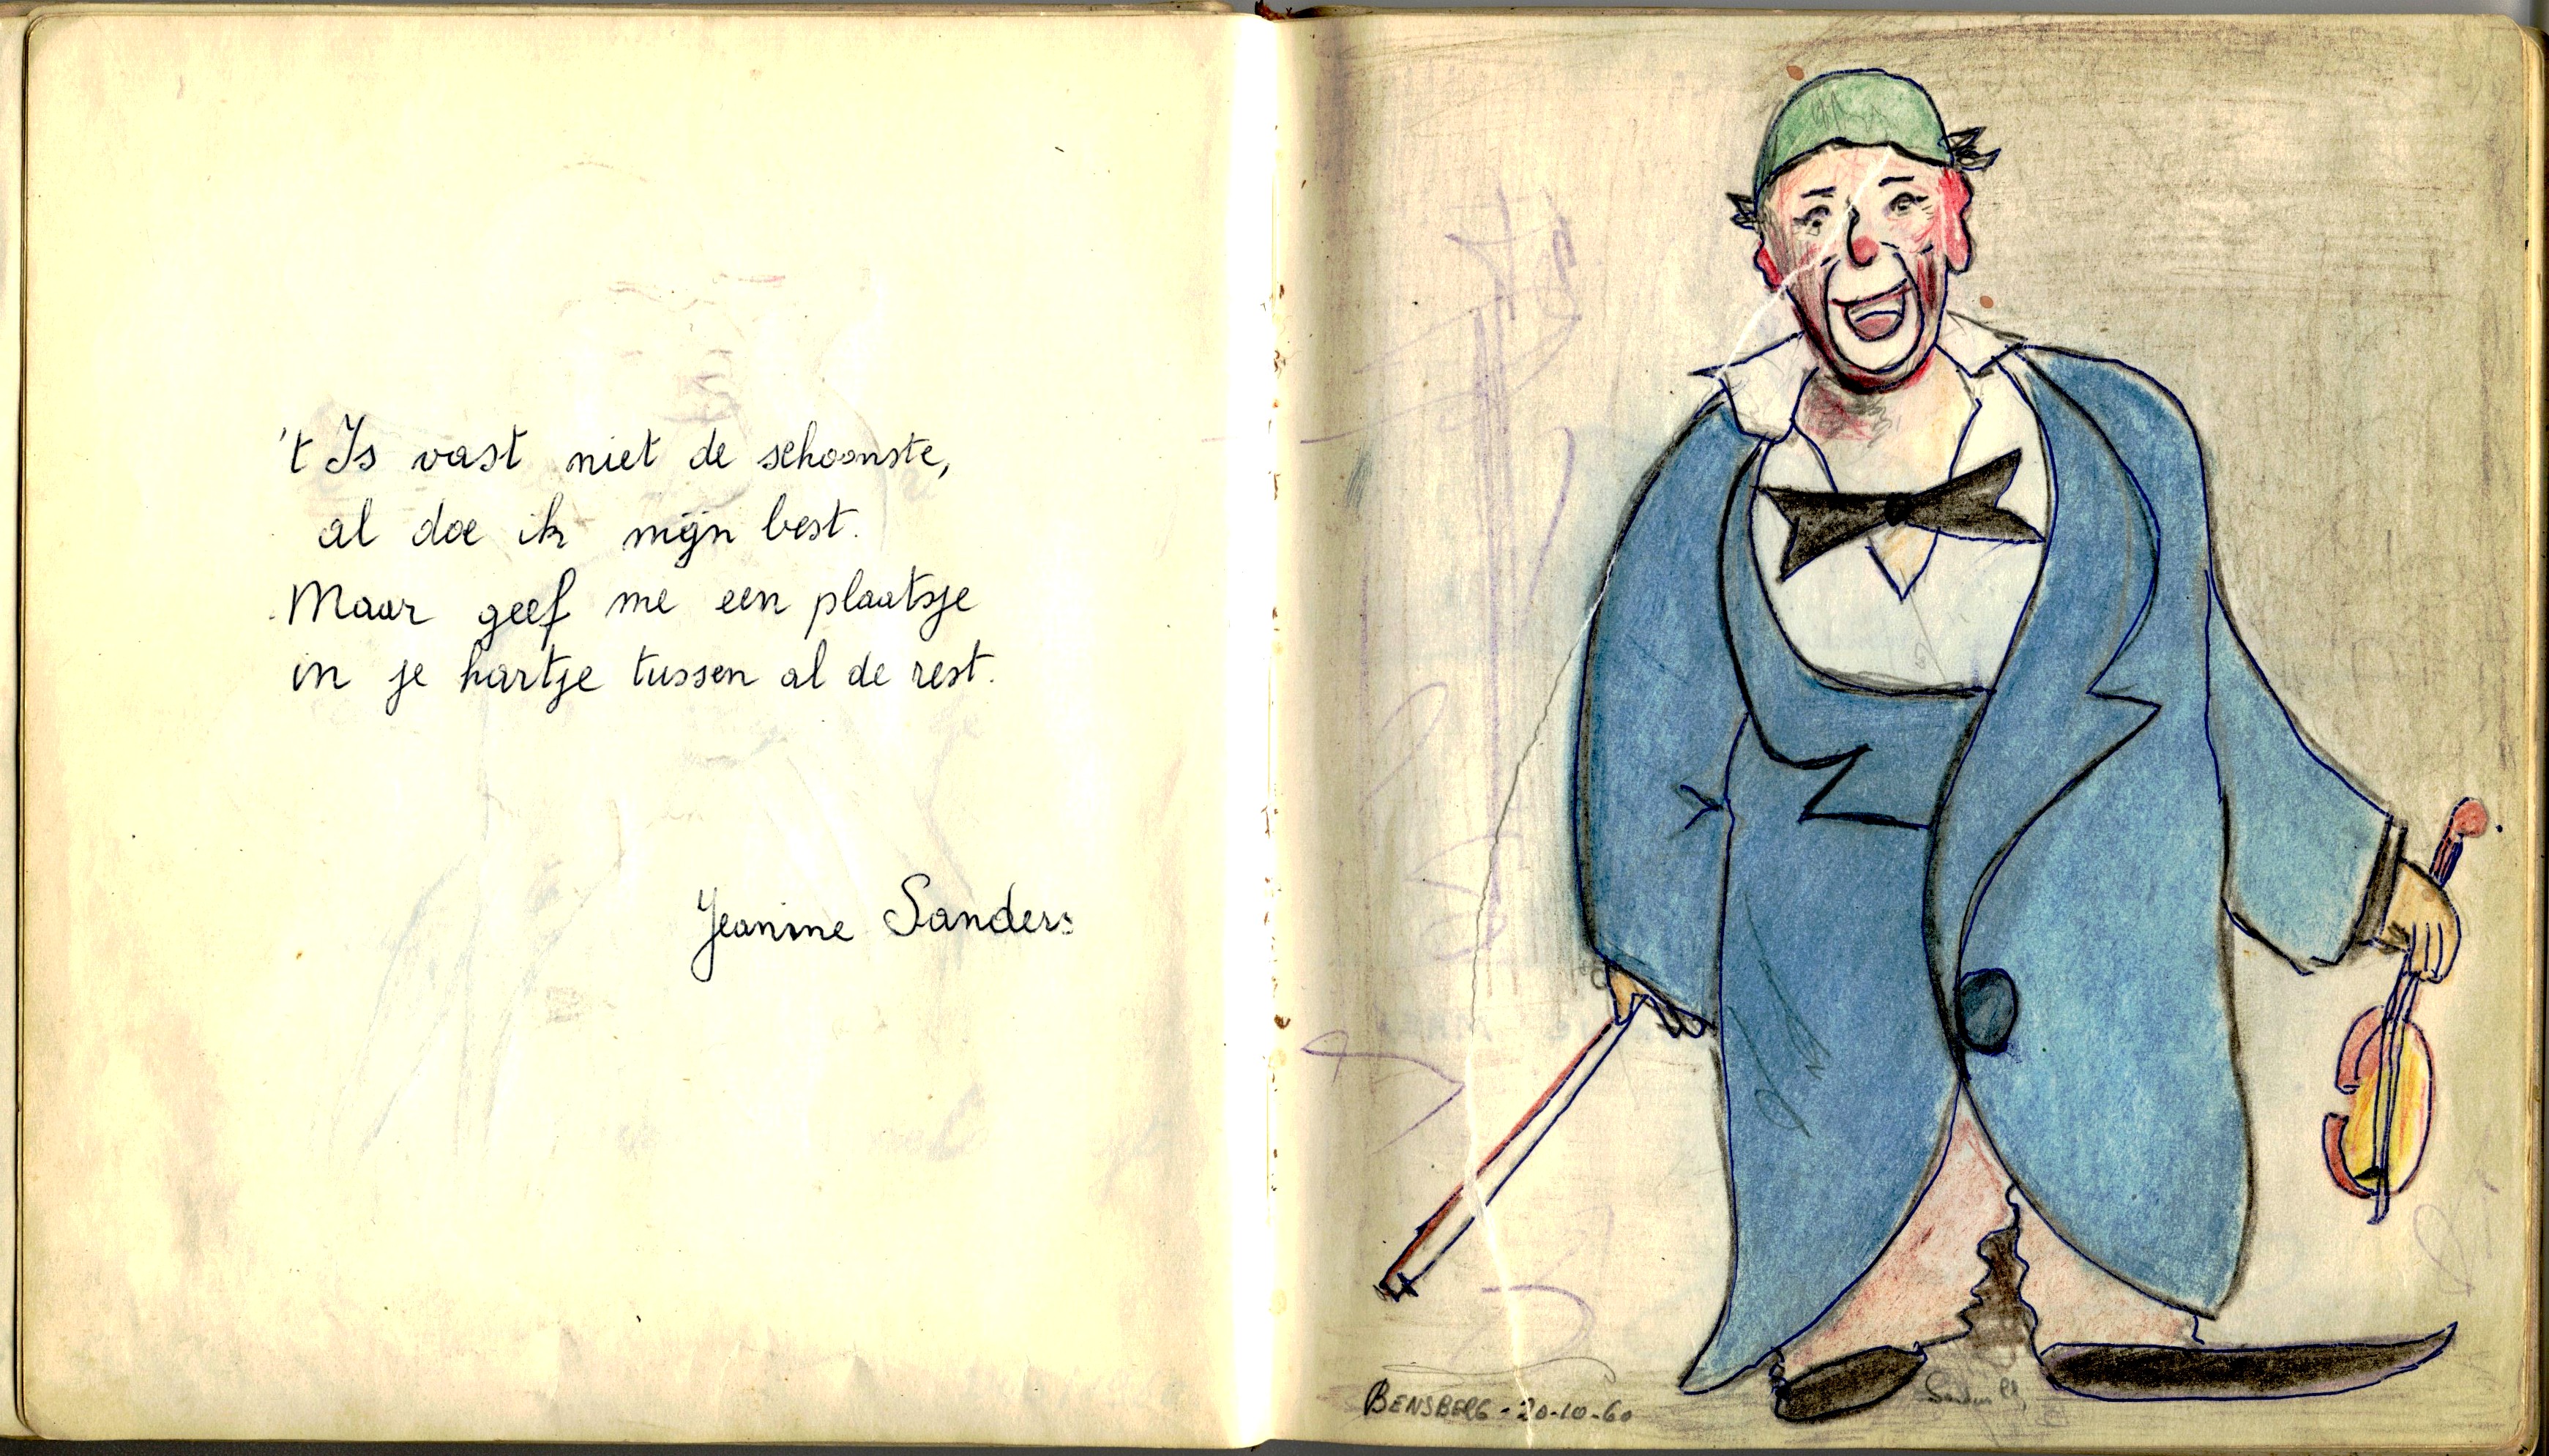 't Is vast niet de schoonste,
al doe ik mijn best.
Maar geef me een plaatsje
in je hartje tussen al de rest.
Jeanine Sanders
BENSBERG - 20-10-60